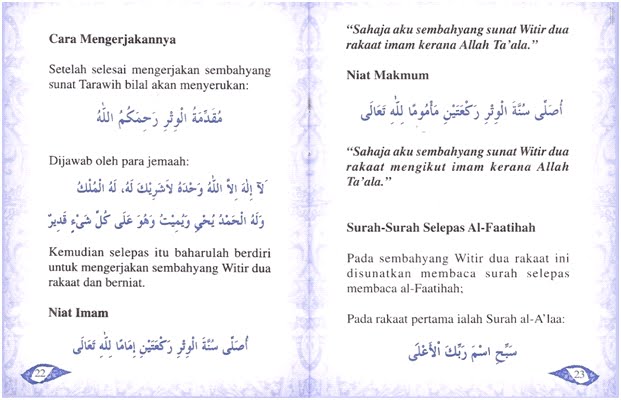 Cara Mengerjakannya
Setelah selesai mengerjakan sembahyang
sunat Tarawih bilal akan menyerukan:
مُقَدِّمَةُ الْوِتْرِ رَحِمَكُمُ اللّٰهُ
Dijawab oleh para jemaah:
لَآ إِلٰهَ إِلاَّ اللّٰهُ وَحْدَهُ لاَشَرِيْكَ لَهُ، لَهُ الْمُلْكُ
وَلَهُ الْحَمْدُ يُحْيِ وَيُمِيْتُ وَهُوَ عَلَى كُلِّ شَىْءٍ قَدِيْرٌ
Kemudian selepas itu baharulah berdiri
untuk mengerjakan sembahyang Witir dua
rakaat dan berniat.
Niat Imam
أُصَلِّى سُنَّةَ الْوِتْرِ رَكْعَتَيْنِ إِمَامًا لِلّٰهِ تَعَالَى
22
“Sahaja aku sembahyang sunat Witir dua
rakaat imam kerana Allah Ta’ala.”
Niat Makmum
أُصَلِّى سُنَّةَ الْوِتْرِ رَكْعَتَيْنِ مَأْمُومًا لِلّٰهِ تَعَالَى
“Sahaja aku sembahyang sunat Witir dua
rakaat mengikut imam kerana Allah
Ta’ala.”
Surah-Surah Selepas Al-Faatihah
Pada sembahyang Witir dua rakaat ini
disunatkan membaca surah selepas
membaca al-Faatihah;
Pada rakaat pertama ialah Surah al-A’laa:
سَبِّحِ اسْمَ رَبِّكَ الْأَعْلَى
23